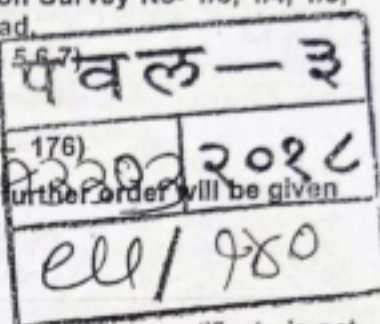 on Survey No-
ad.
5,6,7)
पवल — ३
176)
२०१८
further order will be given
८५/१४०